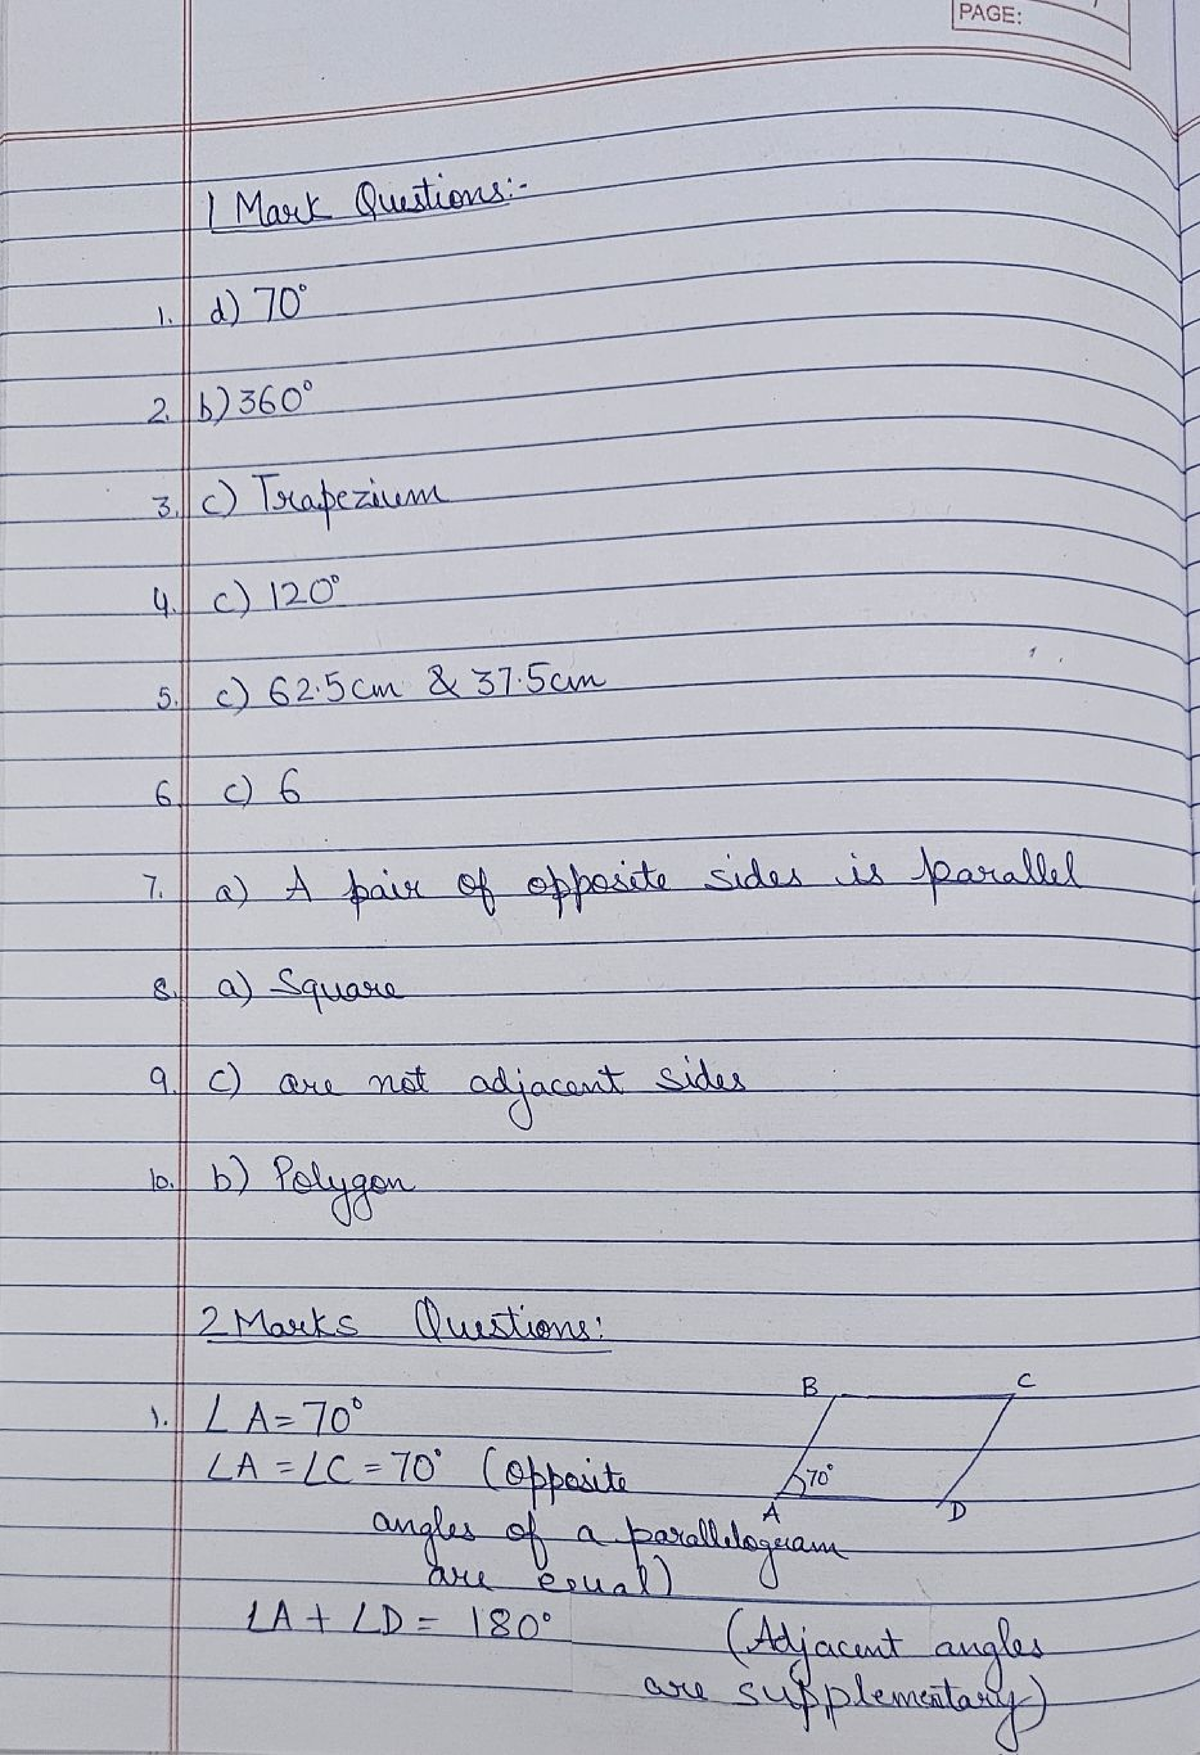 PAGE:
1 Mark Questions:-
1. d) 70°
2. b) 360°
3. c) Trapezium
4. c) 120°
5. c) 62.5cm & 37.5cm
6. c) 6
7. a) A pair of opposite sides is parallel
8. a) Square
9. c) are not adjacent sides
10. b) Polygon
2 Marks Questions:
B C
1. ∠A = 70°
∠A = ∠C = 70° (opposite
70°
A D
angles of a parallelogram
are equal)
∠A + ∠D = 180° (Adjacent angles
are supplementary)